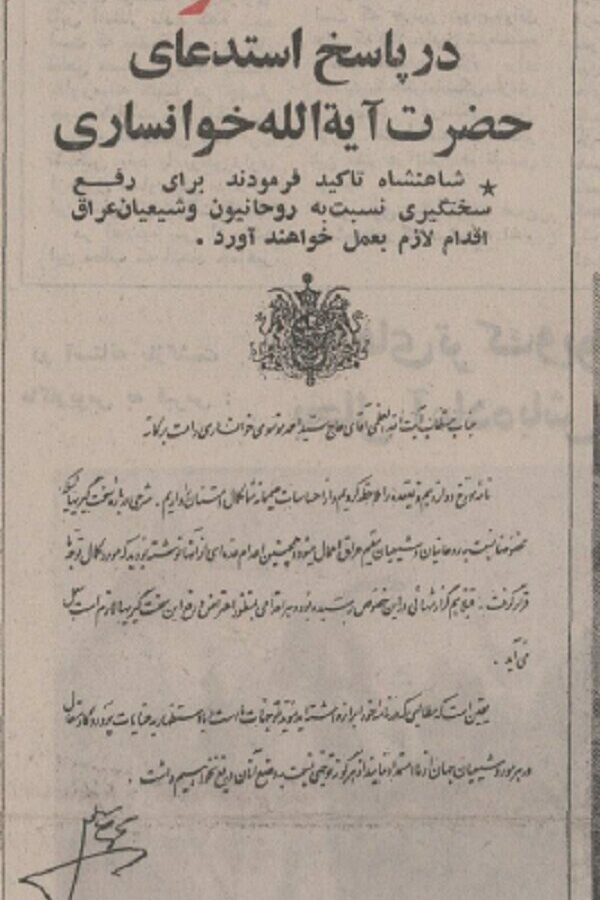 در پاسخ استدعای
حضرت آیةالله خوانساری
★ شاهنشاه تاکید فرمودند برای رفع
سختگیری نسبت به روحانیون و شیعیان عراق
اقدام لازم بعمل خواهند آورد .
جناب مستطاب آیت الله العظمی آقای حاج سید احمد موسوی خوانساری دامت برکاته
نامه مورخ دوازدهم ذیقعده را ملاحظه کردیم و از احساسات صمیمانه شما کمال امتنان را داریم . شرحی درباره سخت گیریهائیکه
مخصوصا نسبت به روحانیان و شیعیان مقیم عراق اعمال میشود و همچنین اعدام عده‌ای از آنها نوشته بودید که مورد کمال توجه ما
قرار گرفت . قبلا هم گزارشهائی در این خصوص رسیده بود و هر اقدامی بمنظور اعتراض و رفع این سخت گیریها لازم است بعمل
می آید .
یقین است که مطالبی که در نامه خود ابراز داشته‌اید مؤید توجهات ما است با استظهار به عنایات پروردگار متعال
در مورد شیعیان جهان از هرگونه توجهی نسبت به وضع آنان دریغ نخواهیم داشت .